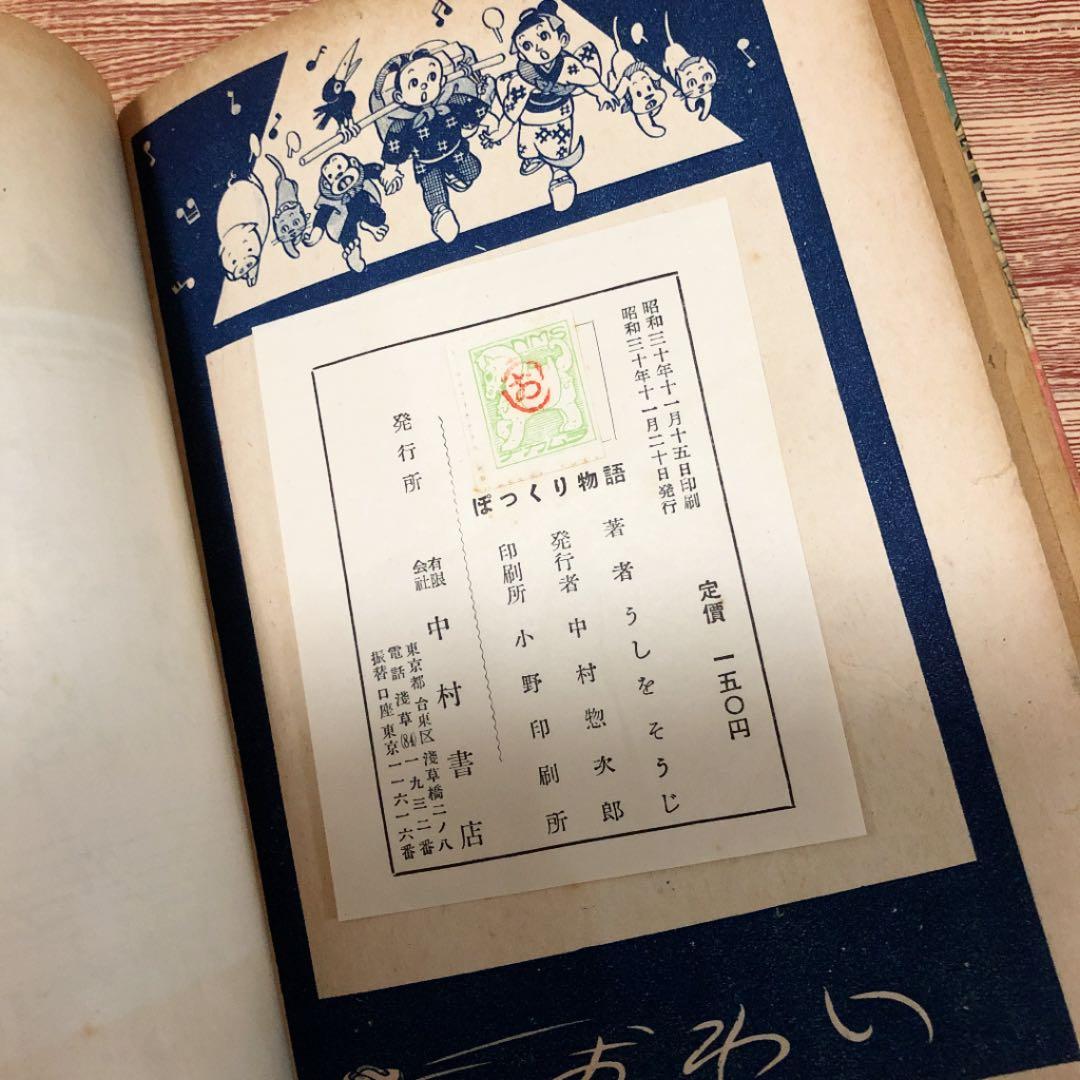 昭和三十年十一月十五日印刷
昭和三十年十一月二十日発行
定價 一五〇円
ぽっくり物語
著者 うしを そうじ
発行者 中村惣次郎
印刷所 小野印刷所
発行所 有限会社 中村書店
東京都台東区淺草橋二ノ八
電話淺草(84)一九三二番
振替口座東京一一六一六番
お
おわい